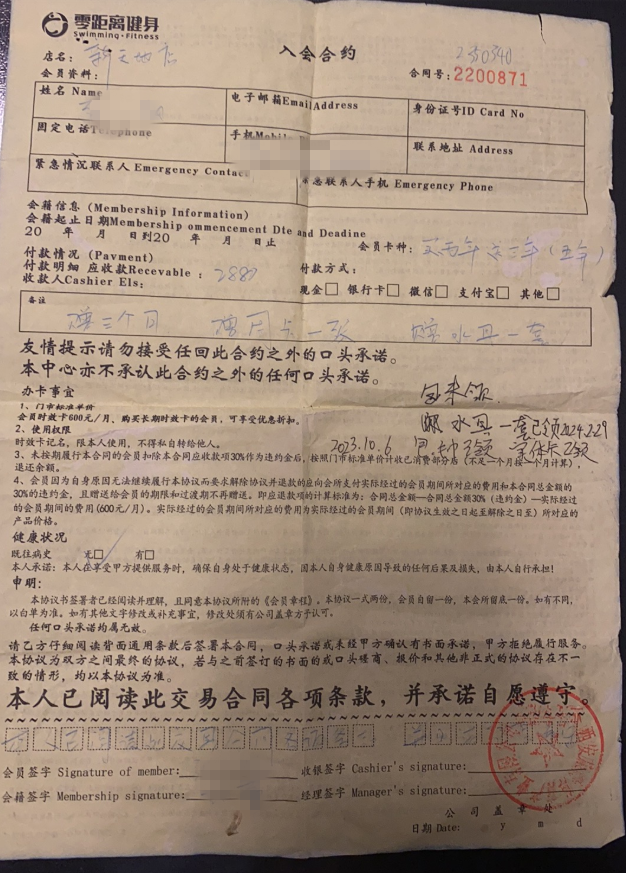 零距离健身
Swimming·Fitness
入会合约
店名：新天地店
230340
会员资料：
合同号：2200871
姓名 Name
电子邮箱EmailAddress
身份证号ID Card No
固定电话Telephone
手机Mobile
联系地址 Address
紧急情况联系人 Emergency Contac
紧急联系人手机 Emergency Phone
会籍信息（Membership Information）
会籍起止日期Membership ommencement Dte and Deadine
20 年 月 日到20 年 月 日止
会员卡种：买两年送三年（五年）
付款情况（Payment）
付款明细 应收款Recevable：2880
付款方式：
收款人Cashier Els：
现金□ 银行卡□ 微信□ 支付宝□ 其他□
备注
赠三个月 赠月卡一张 赠水具一套
友情提示请勿接受任回此合约之外的口头承诺。
本中心亦不承认此合约之外的任何口头承诺。
办卡事宜
1、门市标准单价
会员时效卡600元/月，购买长期时效卡的会员，可享受优惠折扣。
水具一套已领2024.2.29
2、使用权限
时效卡记名，限本人使用，不得私自转给他人。
2023.10.6
3、未按期履行本合同的会员扣除本合同应收款项30%作为违约金后，按照门市标准单价计收已消费部分后（不足一个月按一个月计算），
退还余额。
4、会员因为自身原因无法继续履行本协议而要求解除协议并退款的应向会所支付实际经过的会员期间所对应的费用和本合同总金额的
30%的违约金，且赠送给会员的期限和过渡期不再赠送。即应退款项的计算标准为：合同总金额—合同总金额30%（违约金）—实际经过
的会员期间的费用(600元/月)。实际经过的会员期间所对应的费用为实际经过的会员期间（即协议生效之日起至解除之日至）所对应的
产品价格。
健康状况
既往病史 无□ 有□
本人承诺：本人在享受甲方提供服务时，确保自身处于健康状态，因本人自身健康原因导致的任何后果及损失，由本人自行承担！
申明：
本协议书签署者已经阅读并理解，且同意本协议所附的《会员章程》。本协议一式两份，会员自留一份，本会所留底一份。如有不同，
以白单为准。如有其他文字修改或补充事宜，修改处须有公司盖章方予认可。
任何口头承诺均属无效。
请乙方仔细阅读背面通用条款后签署本合同，口头承诺或未经甲方确认有书面承诺，甲方拒绝履行服务。
本协议为双方之间最终的协议，若与之前签订的书面的或口头磋商、报价和其他非正式的协议存在不一
致的情形，均以本协议为准。
本人已阅读此交易合同各项条款，并承诺自愿遵守。
会员签字 Signature of member:
收银签字 Cashier's signature:
会籍签字 Membership signature:
经理签字 Manager's signature:
公司盖章处
日期 Date: y m d